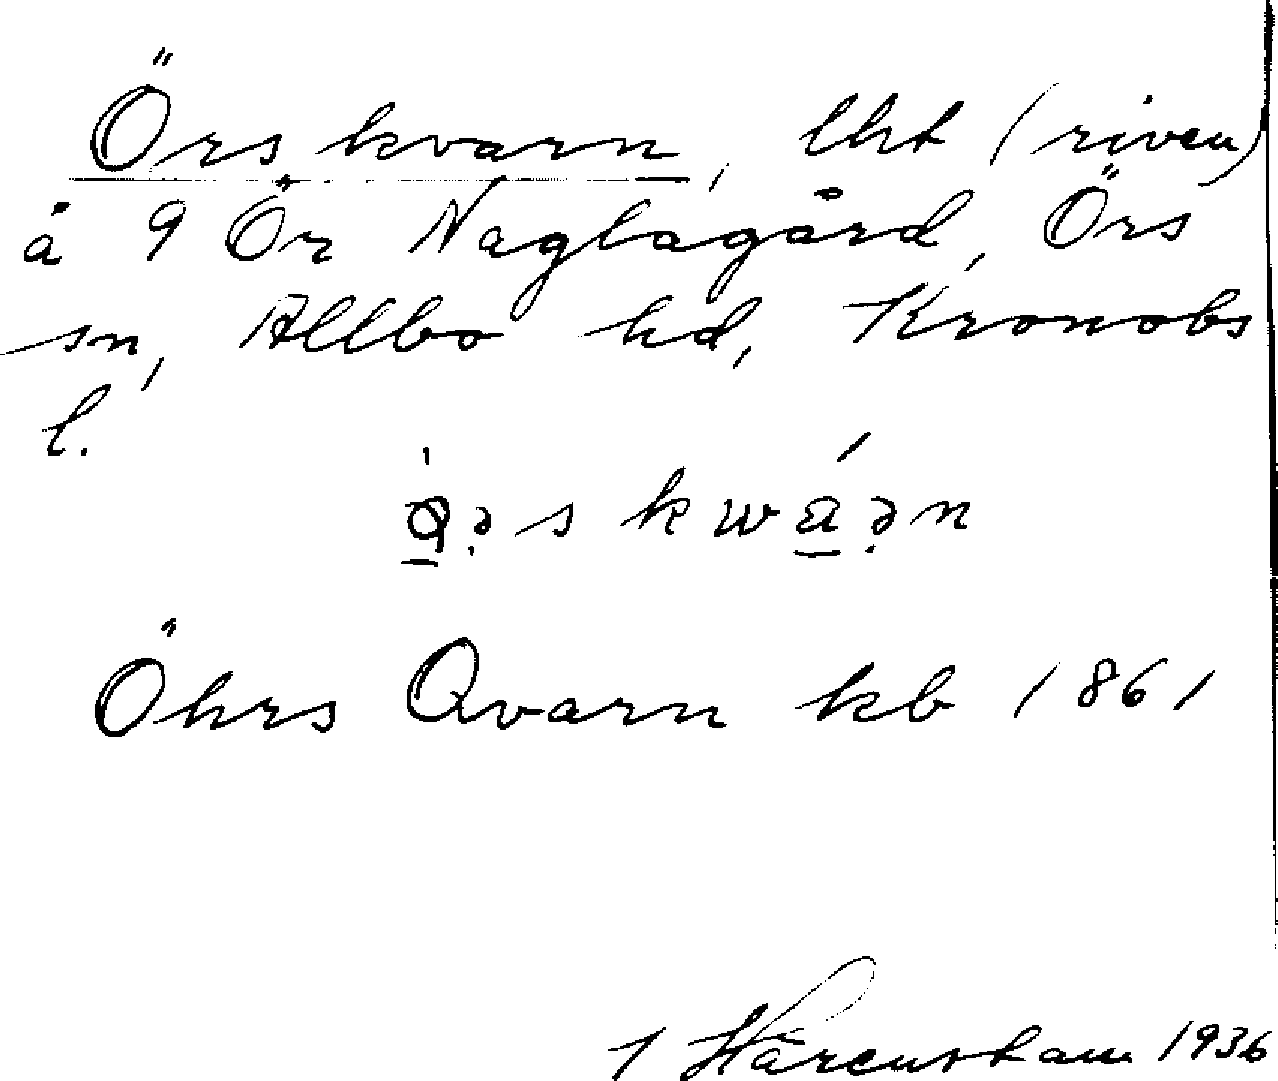 Örs kvarn, lht (riven)
å 9 Ör Naglagård, Örs
sn, Allbo hd, Kronobs
l.
kwa
Öhrs Qvarn kb 1861
1936